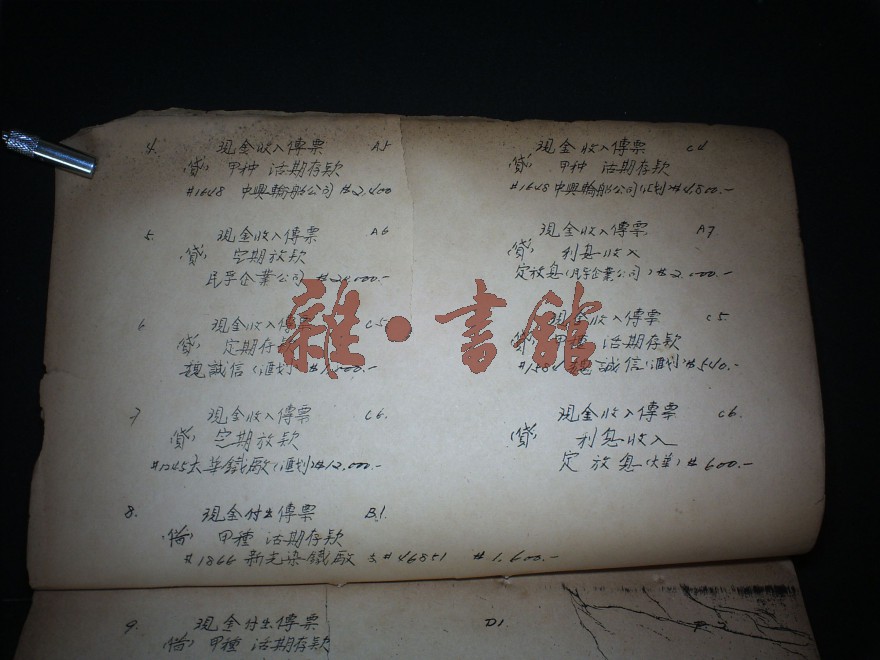 4. 現金收入傳票 A5
(貸) 甲种 活期存款
#1648 中興輪船公司 $2,400
現金收入傳票 C4
(貸) 甲种 活期存款
#1648 中興輪船公司(汇划) $4,800.-
5. 現金收入傳票 A6
(貸) 定期放款
民孚企業公司
現金收入傳票 A7
(貸) 利息收入
定放息(民孚企業公司) $2,000.-
6 現金收入傳票 C5
(貸) 定期存
魏誠信(滙划)
現金收入傳票 C5
(貸) 甲種 活期存款
魏誠信(滙划) $540.-
雜·書館
7 現金收入傳票 C6.
(貸) 定期放款
#1245 大華鐵廠(滙划) $12,000.-
現金收入傳票 C6
(貸) 利息收入
定放息(大華) $600.-
8. 現金付出傳票 B1.
(借) 甲種 活期存款
#1866 新光染織廠 支#46851 $1,600.-
9. 現金付出傳票 D1
(借) 甲種 活期存款